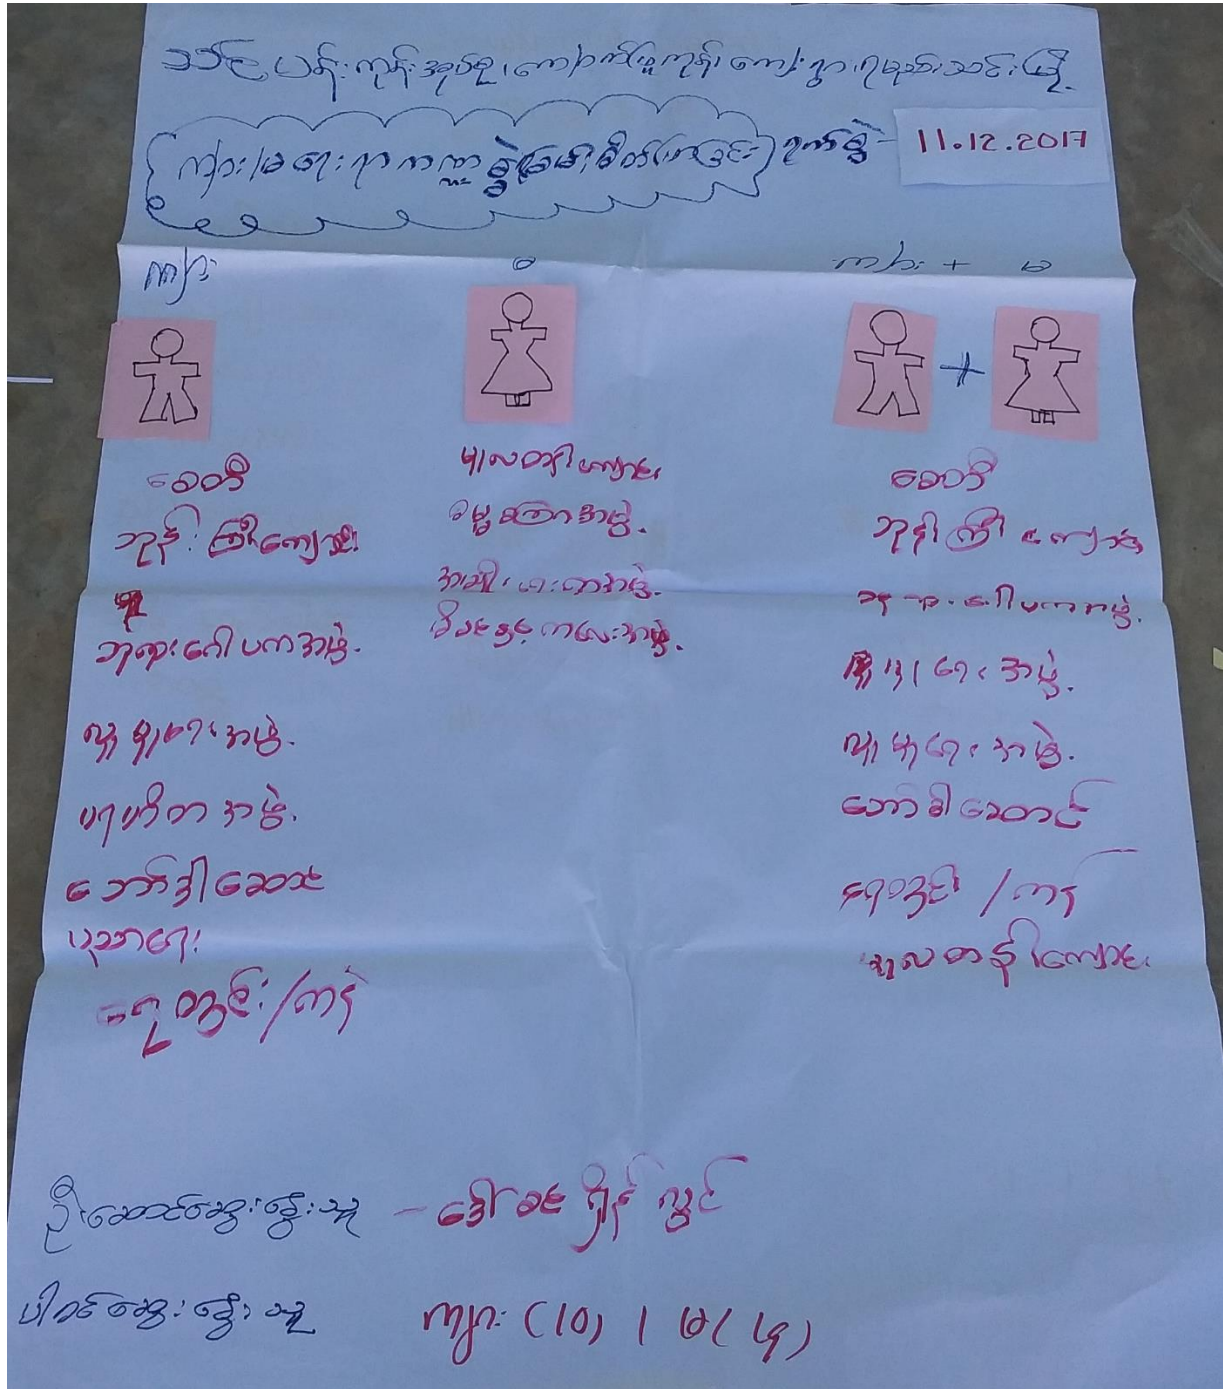 သပြေပန်းကုန်းအုပ်စု၊ ကျောက်ဖြူကုန်း ကျေးရွာ၊ ရမည်းသင်းမြို့
ကျား/မရေးရာကဏ္ဍခွဲခြမ်းစိတ်ဖြာခြင်း ရက်စွဲ - 11.12.2017
ကျား မ ကျား + မ
+
စေတီ
ဘုန်းကြီးကျောင်း
ဘုရားဂေါပကအဖွဲ့.
လူမှုရေးအဖွဲ့.
ပရဟိတအဖွဲ့.
ဘော်ဒါဆောင်
ပညာရေး
ရေတွင်း/ကန်
မူလတန်းကျောင်း
ဓမ္မစကြာအဖွဲ့.
အမျိုးရေးရာအဖွဲ့.
မိခင်နှင့်ကလေးအဖွဲ့.
စေတီ
ဘုန်းကြီးကျောင်း
ဘုရားဂေါပကအဖွဲ့.
အဖွဲ့.
လူမှုရေးအဖွဲ့.
ဘော်ဒါဆောင်
ရေတွင်း/ကန်
မူလတန်းကျောင်း
ဦးဆောင်ဆွေးနွေးသူ - ဒေါ်ခင်ရှိန်လွင်
ပါဝင်ဆွေးနွေးသူ ကျား (10) / မ(၄၄)